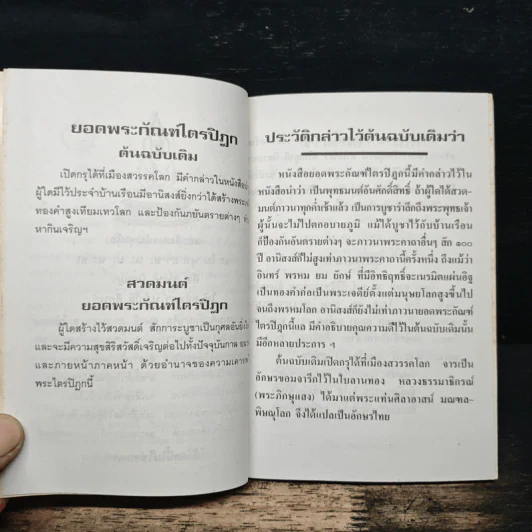 ยอดพระกัณฑ์ไตรปิฎก
ต้นฉบับเดิม
เปิดกรุได้ที่เมืองสวรรคโลก มีคำกล่าวในหนังสือ
ผู้ใดมีไว้ประจำบ้านเรือนมีอานิสงส์ยิ่งกว่าได้สร้างพระ
ทองคำสูงเทียมเทวโลก และป้องกันภยันตรายต่างๆ
หากินเจริญฯ
สวดมนต์
ยอดพระกัณฑ์ไตรปิฎก
ผู้ใดสร้างไว้สวดมนต์ สักการะบูชาเป็นกุศลอัน
และจะมีความสุขสิริสวัสดิ์เจริญต่อไปทั้งปัจจุบันกาล
และภายหน้าภาคหน้า ด้วยอำนาจของความเคารพ
พระไตรปิฎกนี้
ประวัติกล่าวไว้ต้นฉบับเดิมว่า
หนังสือยอดพระกัณฑ์ไตรปิฎกนี้มีคำกล่าวไว้ใน
หนังสือนำว่า เป็นพุทธมนต์อันศักดิ์สิทธิ์ ถ้าผู้ใดได้สวด-
มนต์ภาวนาทุกค่ำเช้าแล้ว เป็นการบูชารำลึกถึงพระพุทธเจ้า
ผู้นั้นจะไม่ไปตกอบายภูมิ แม้ได้บูชาไว้กับบ้านเรือน
ก็ป้องกันอันตรายต่างๆ จะภาวนาพระคาถาอื่นๆ สัก ๑๐๐
ปี อานิสงส์ก็ไม่สูงเท่าภาวนาพระคาถานี้ครั้งหนึ่ง ถึงแม้ว่า
อินทร์ พรหม ยม ยักษ์ ที่มีอิทธิฤทธิ์จะเนรมิตแผ่นอิฐ
เป็นทองคำก่อเป็นพระเจดีย์ตั้งแต่มนุษยโลกสูงขึ้นไป
จนถึงพรหมโลก อานิสงส์ก็ยังไม่เท่าภาวนายอดพระกัณฑ์
ไตรปิฎกนี้แล มีคำอธิบายคุณความดีไว้ในต้นฉบับเดิมนั้น
มีอีกหลายประการ ฯ
ต้นฉบับเดิมเปิดกรุได้ที่เมืองสวรรคโลก จารเป็น
อักษรขอมจารึกไว้ในใบลานทอง หลวงธรรมาธิกรณ์
(พระภิกษุแสง) ได้มาแต่พระแท่นศิลาอาสน์ มณฑล-
พิษณุโลก จึงได้แปลเป็นอักษรไทย